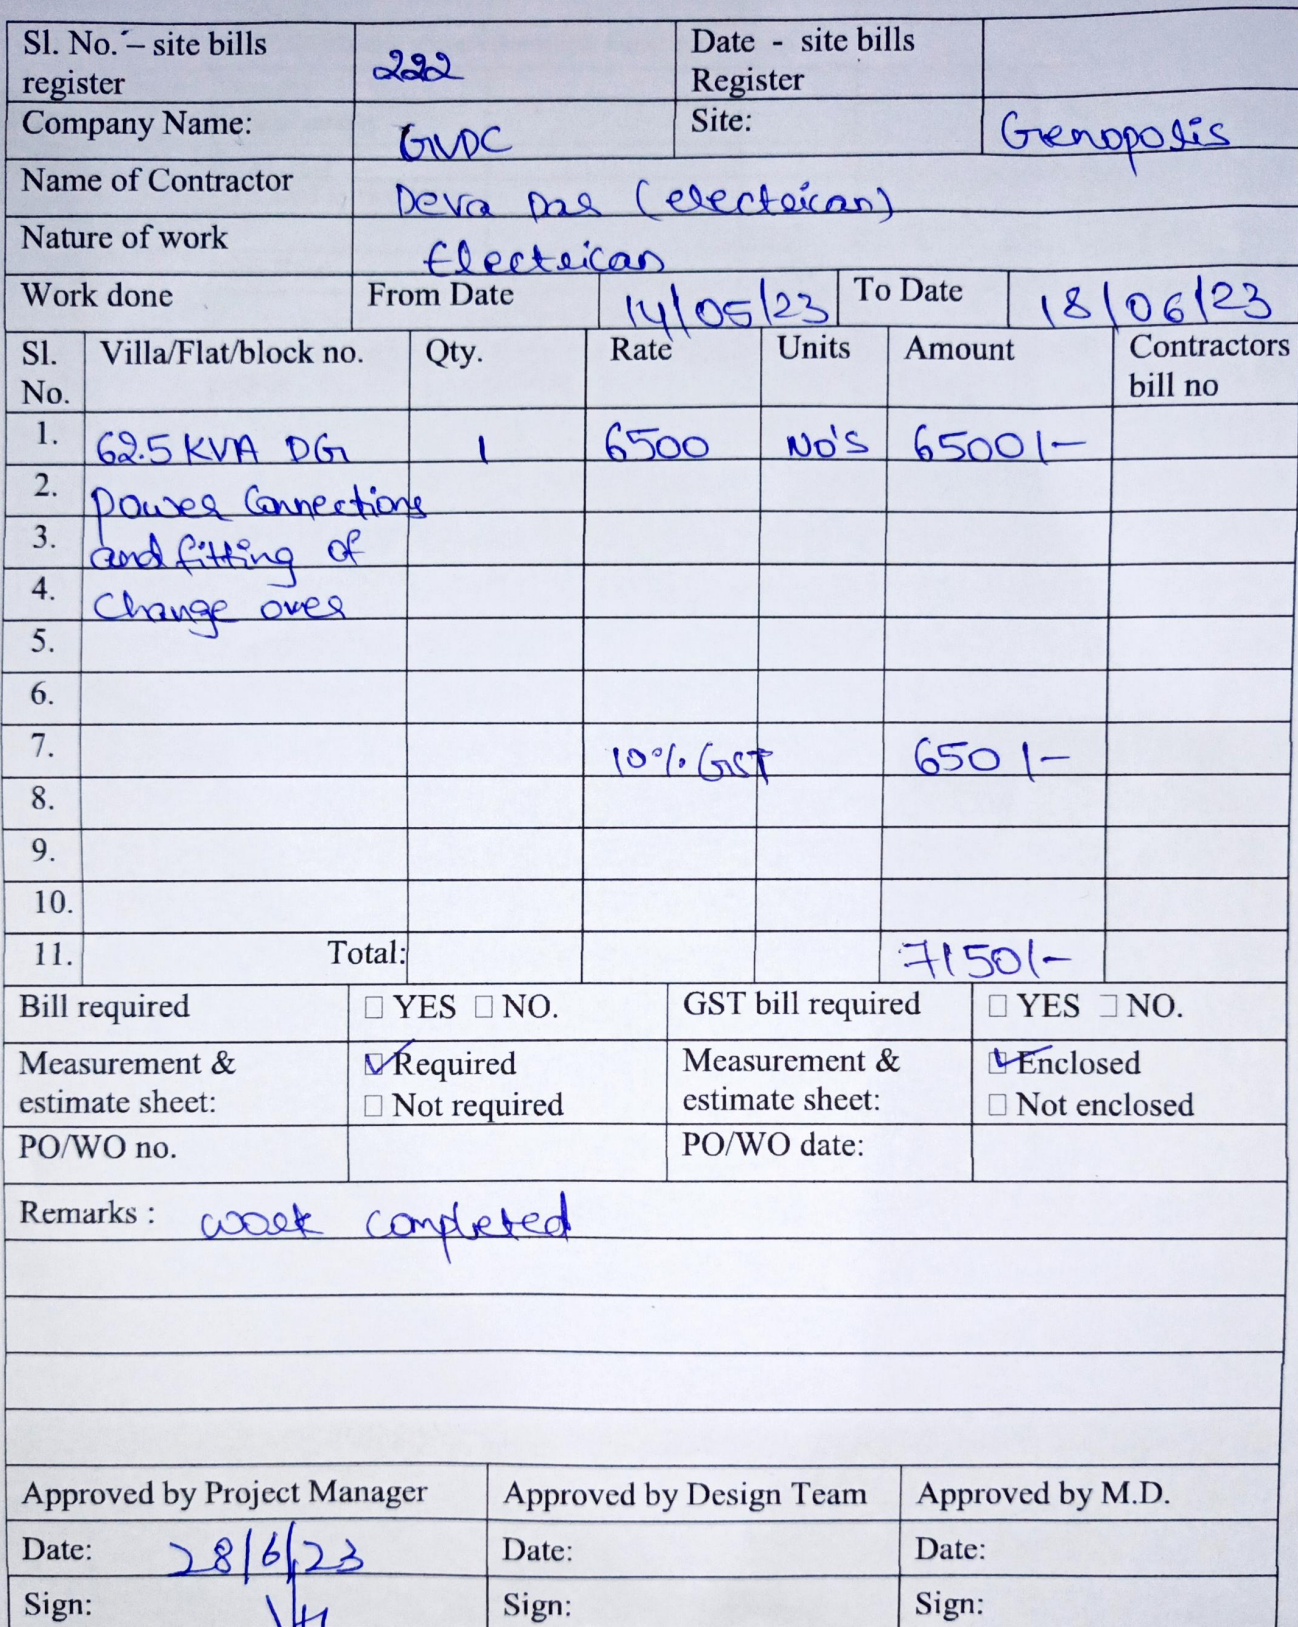 Sl. No. – site bills register 222 Date - site bills Register
Company Name: GVDC Site: Genopolis
Name of Contractor Deva Das (electrican)
Nature of work Electrican
Work done From Date 14/05/23 To Date 18/06/23
Sl. No. Villa/Flat/block no. Qty. Rate Units Amount Contractors bill no
1. 62.5 KVA DG 1 6500 No's 6500/-
2. power Connections
3. and fitting of
4. Change over
5.
6.
7. 10% GST 650/-
8.
9.
10.
11. Total: 7150/-
Bill required □ YES □ NO. GST bill required □ YES □ NO.
Measurement & estimate sheet: ☑ Required Measurement & estimate sheet: ☑ Enclosed
□ Not required □ Not enclosed
PO/WO no. PO/WO date:
Remarks : work completed
Approved by Project Manager Approved by Design Team Approved by M.D.
Date: 28/6/23 Date: Date:
Sign: Sign: Sign: